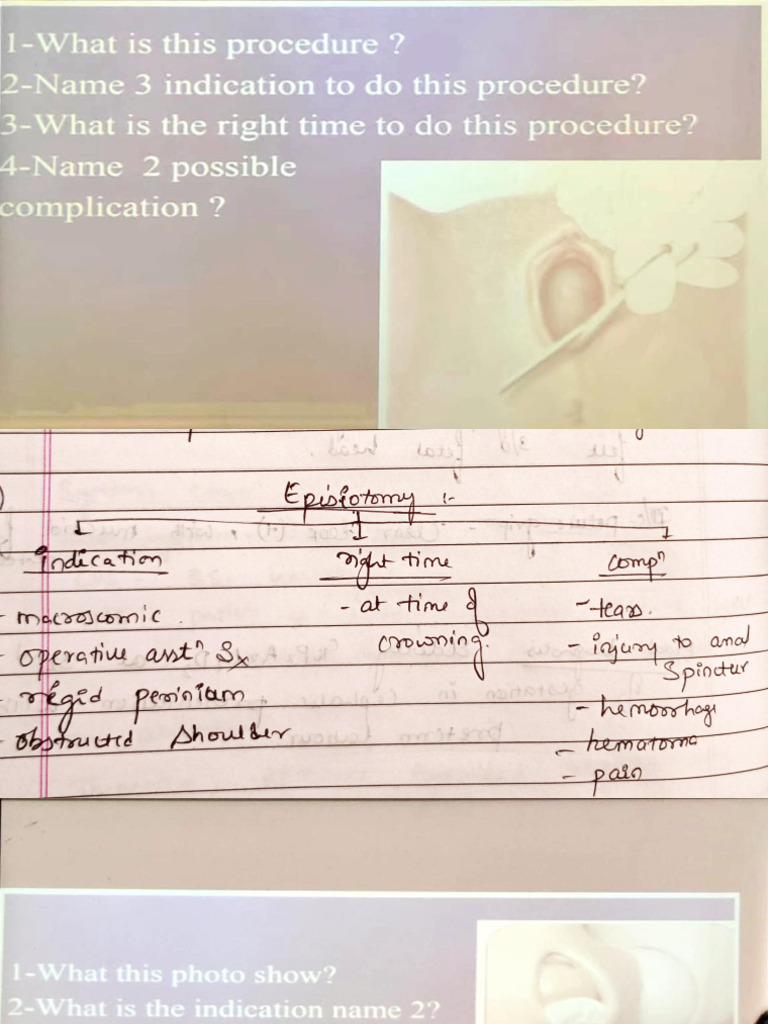 1-What is this procedure ?
2-Name 3 indication to do this procedure?
3-What is the right time to do this procedure?
4-Name 2 possible
complication ?
Episiotomy :-
indication
right time
compⁿ
- macroscomic.
- at time of
crowning.
- tears.
- operative asstⁿ Sx
- injury to anal
Spinctur
- régid perinium
- hemorrhage
- obstructed shoulder
- hematoma
- pain
1-What this photo show?
2-What is the indication name 2?